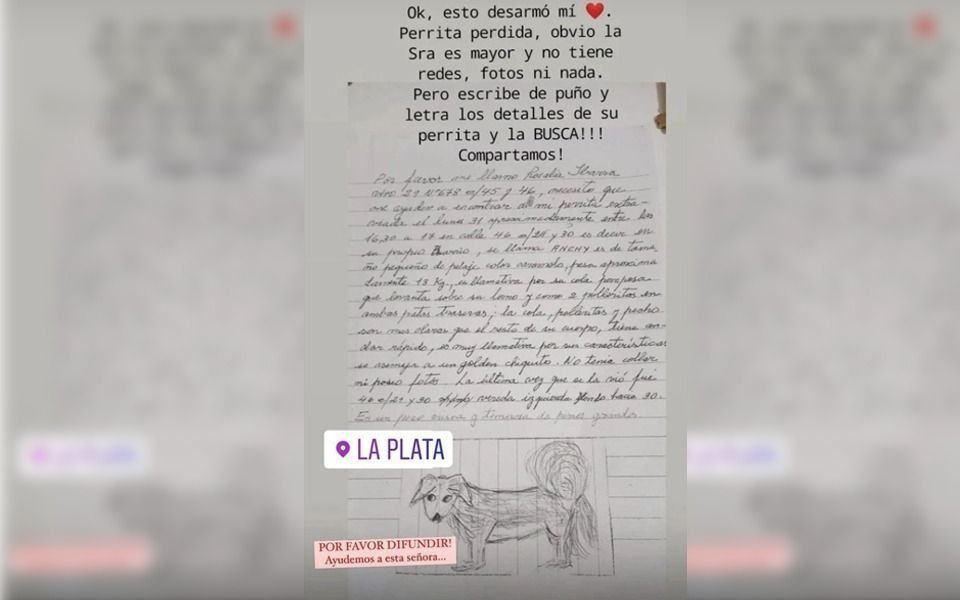 Ok, esto desarmó mí ❤️.
Perrita perdida, obvio la
Sra es mayor y no tiene
redes, fotos ni nada.
Pero escribe de puño y
letra los detalles de su
perrita y la BUSCA!!!
Compartamos!
Por favor me llamo Rosalia Ibarra
vivo 29 Nº678 e/45 y 46, necesito que
me ayuden a encontrar a mi perrita extra-
viada el lunes 31 aproximadamente entre las
16,30 a 17 en calle 46 e/29 y 30 es decir en
su propio Barrio, se llama ANCHY es de tama
ño pequeño de pelaje color caramelo, pesa aproxima
damente 13 Kg, es llamativa por su cola pomposa
que levanta sobre su lomo y como 2 polleritas en
ambas patas traseras; la cola, polleritas y pecho
son mas claras que el resto de su cuerpo, tiene an-
dar rápido, es muy llamativa por sus características
se asemeja a un golden chiquito. No tenia collar
ni poseo fotos. La última vez que se la vió fué
46 e/29 y 30 vereda izquierda yendo hacia 30.
Es un poco arisca y temerosa de perros grandes.
LA PLATA
POR FAVOR DIFUNDIR!
Ayudemos a esta señora...